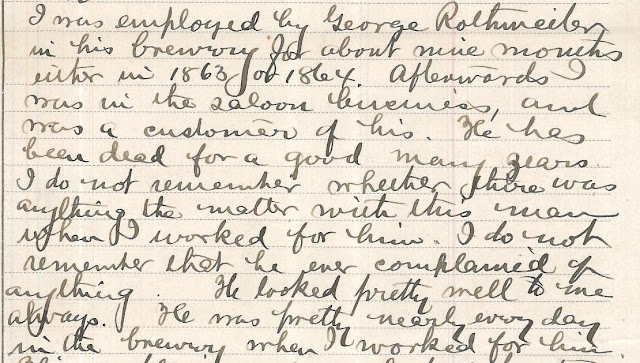 I was employed by George Rothweiler
in his brewery for about nine months
either in 1863 or 1864. Afterwards I
was in the saloon business, and
was a customer of his. He has
been dead for a good many years.
I do not remember whether there was
anything the matter with this man
when I worked for him. I do not
remember that he ever complained of
anything. He looked pretty well to me
always. He was pretty nearly every day
in the brewery when I worked for him